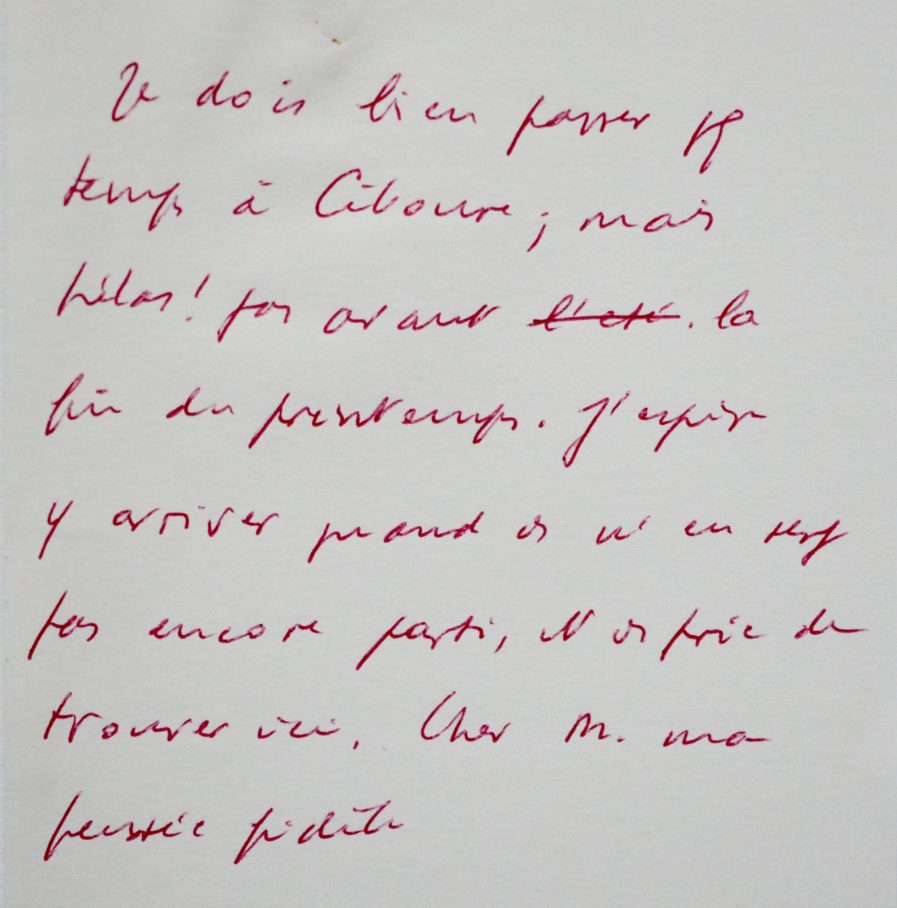 Je dois bien passer qq
temps à Ciboure ; mais
hélas ! pas avant l'été. la
fin du printemps. J'espère
y arriver quand vs n'en serez
pas encore parti, et vs prie de
trouver ici, Cher M. ma
pensée fidèle